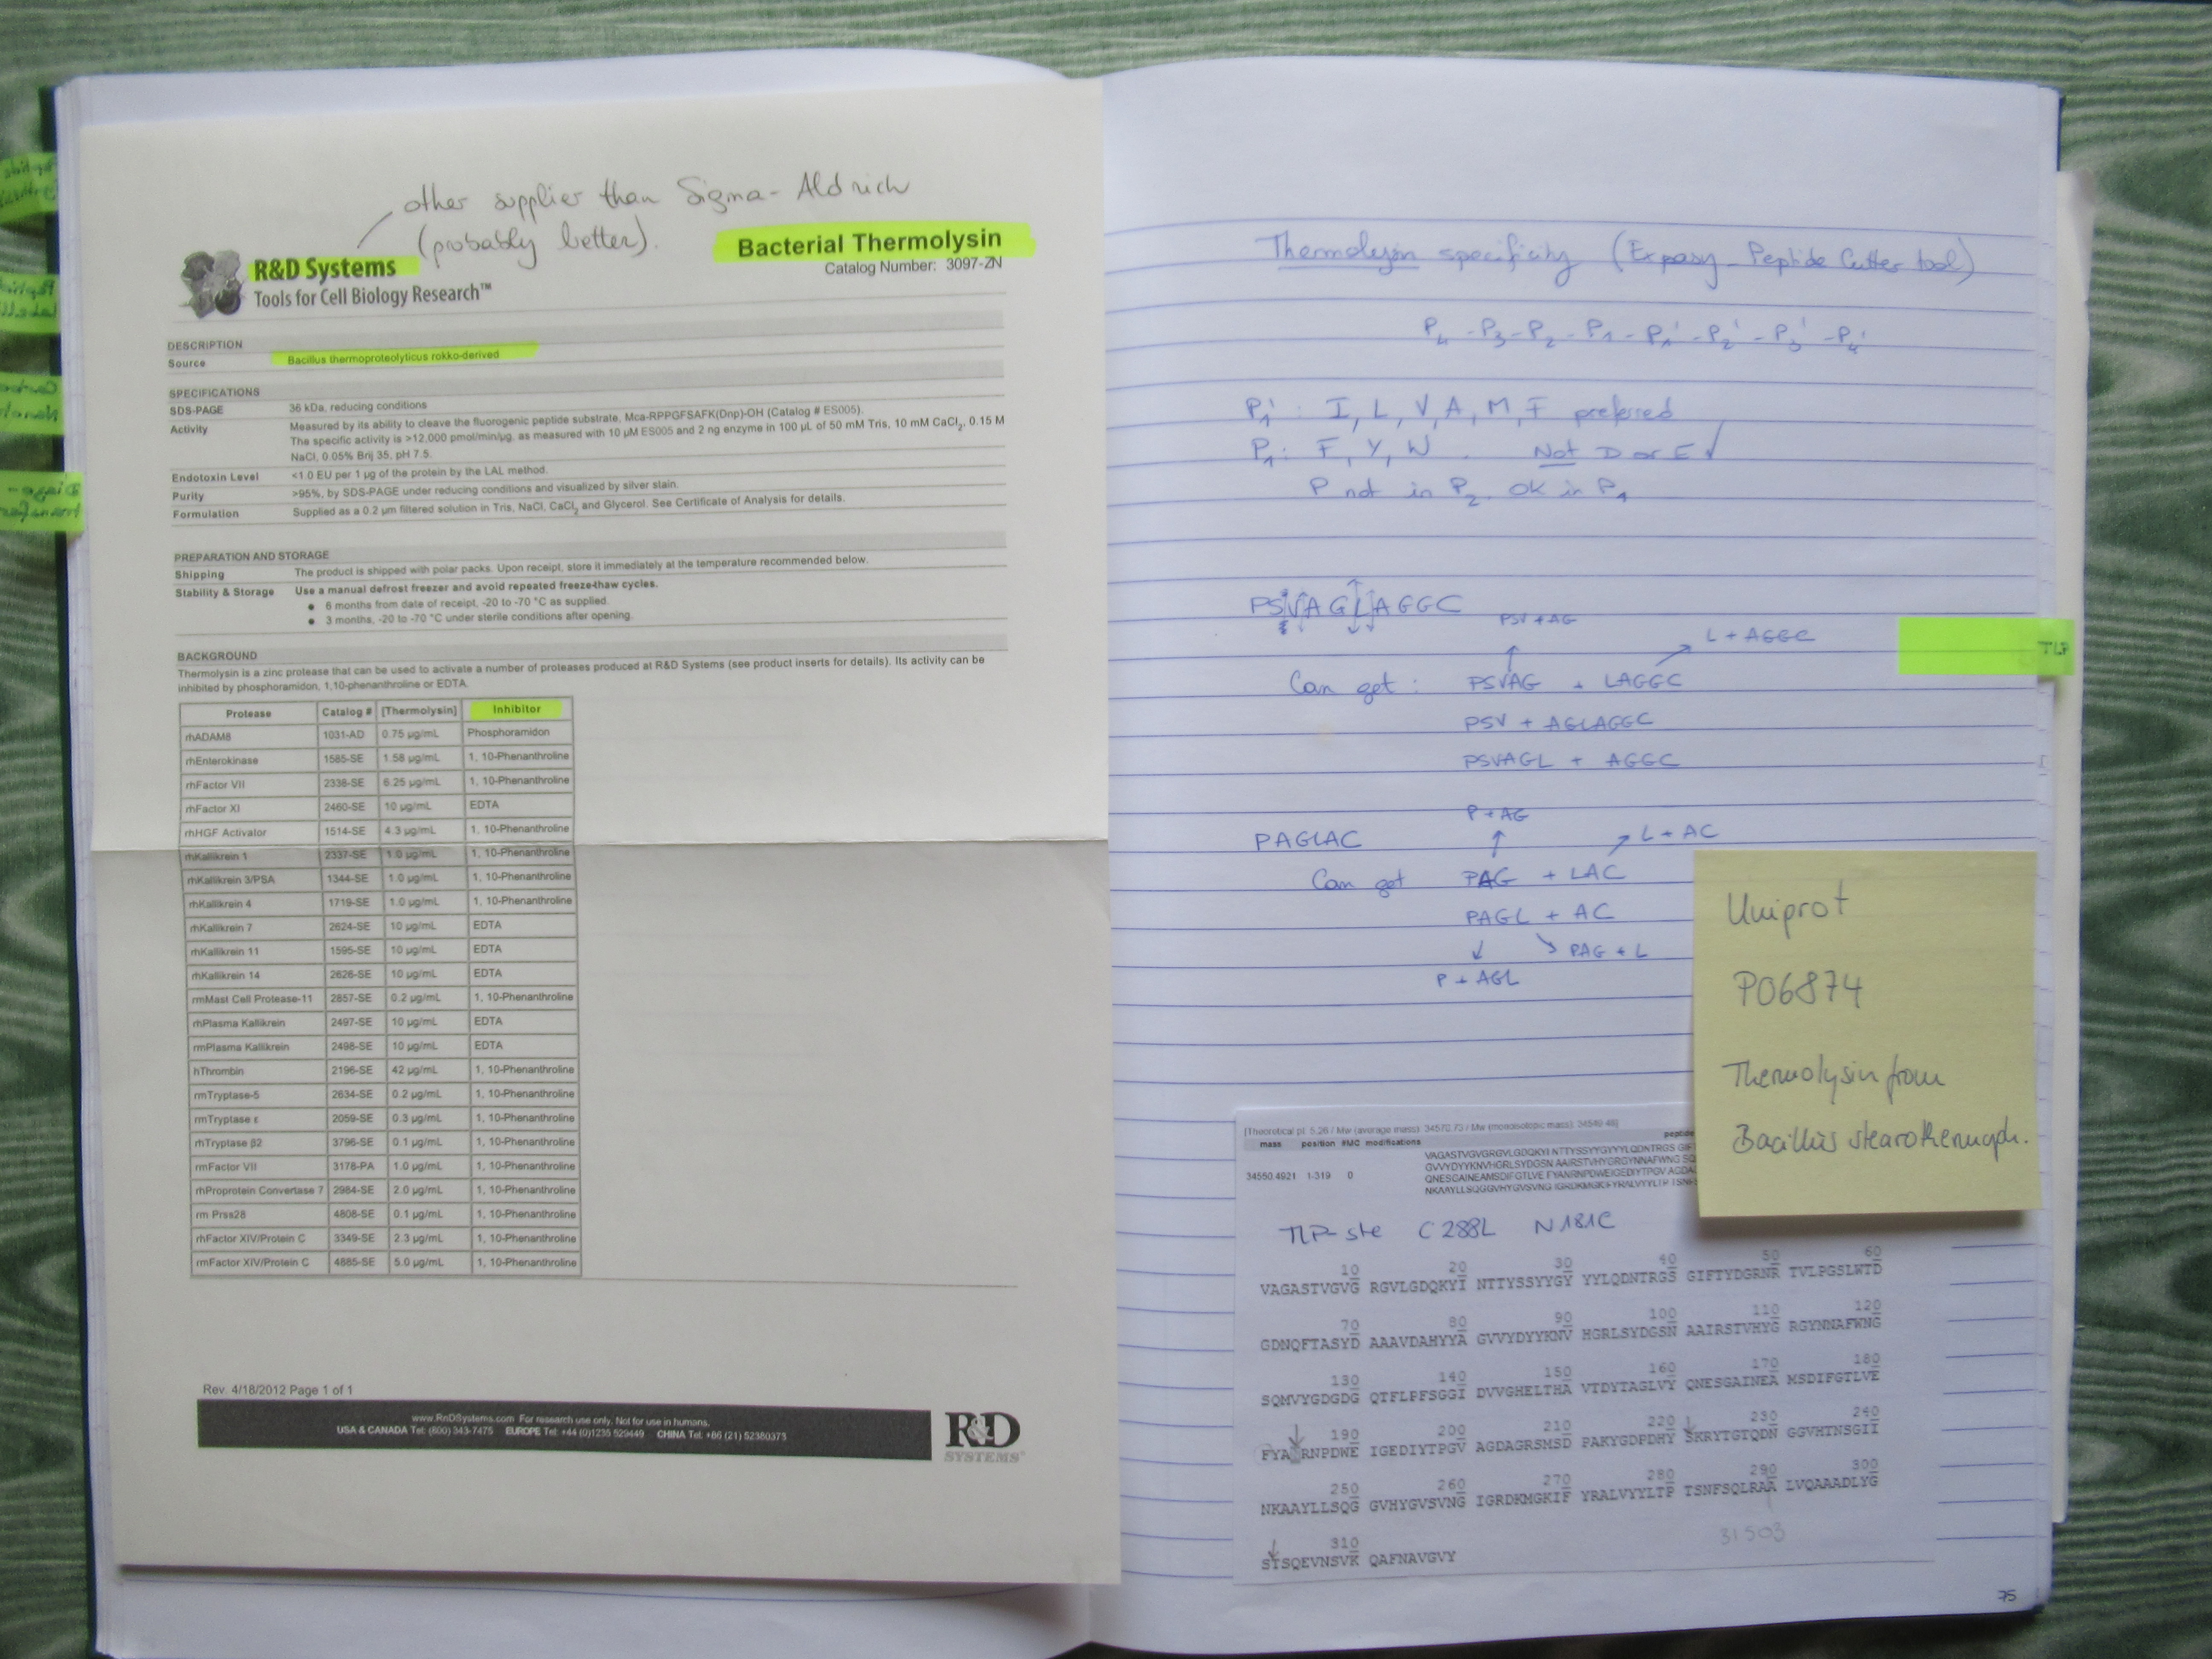 other supplier than Sigma-Aldrich
(probably better).
R&D Systems
Tools for Cell Biology Research™
Bacterial Thermolysin
Catalog Number: 3097-ZN
DESCRIPTION
Source Bacillus thermoproteolyticus rokko-derived
SPECIFICATIONS
SDS-PAGE 36 kDa, reducing conditions
Activity Measured by its ability to cleave the fluorogenic peptide substrate, Mca-RPPGFSAFK(Dnp)-OH (Catalog # ES005).
The specific activity is >12,000 pmol/min/µg, as measured with 10 µM ES005 and 2 ng enzyme in 100 µL of 50 mM Tris, 10 mM CaCl2, 0.15 M
NaCl, 0.05% Brij 35, pH 7.5.
Endotoxin Level <1.0 EU per 1 µg of the protein by the LAL method.
Purity >95%, by SDS-PAGE under reducing conditions and visualized by silver stain.
Formulation Supplied as a 0.2 µm filtered solution in Tris, NaCl, CaCl2 and Glycerol. See Certificate of Analysis for details.
PREPARATION AND STORAGE
Shipping The product is shipped with polar packs. Upon receipt, store it immediately at the temperature recommended below.
Stability & Storage Use a manual defrost freezer and avoid repeated freeze-thaw cycles.
● 6 months from date of receipt, -20 to -70 °C as supplied.
● 3 months, -20 to -70 °C under sterile conditions after opening.
BACKGROUND
Thermolysin is a zinc protease that can be used to activate a number of proteases produced at R&D Systems (see product inserts for details). Its activity can be
inhibited by phosphoramidon, 1,10-phenanthroline or EDTA.
Protease Catalog # [Thermolysin] Inhibitor
rhADAM8 1031-AD 0.75 µg/mL Phosphoramidon
rhEnterokinase 1585-SE 1.58 µg/mL 1, 10-Phenanthroline
rhFactor VII 2338-SE 6.25 µg/mL 1, 10-Phenanthroline
rhFactor XI 2460-SE 10 µg/mL EDTA
rhHGF Activator 1514-SE 4.3 µg/mL 1, 10-Phenanthroline
rhKallikrein 1 2337-SE 1.0 µg/mL 1, 10-Phenanthroline
rhKallikrein 3/PSA 1344-SE 1.0 µg/mL 1, 10-Phenanthroline
rhKallikrein 4 1719-SE 1.0 µg/mL 1, 10-Phenanthroline
rhKallikrein 7 2624-SE 10 µg/mL EDTA
rhKallikrein 11 1595-SE 10 µg/mL EDTA
rhKallikrein 14 2626-SE 10 µg/mL EDTA
rmMast Cell Protease-11 2857-SE 0.2 µg/mL 1, 10-Phenanthroline
rhPlasma Kallikrein 2497-SE 10 µg/mL EDTA
rmPlasma Kallikrein 2498-SE 10 µg/mL EDTA
hThrombin 2196-SE 42 µg/mL 1, 10-Phenanthroline
rmTryptase-5 2634-SE 0.2 µg/mL 1, 10-Phenanthroline
rmTryptase ε 2059-SE 0.3 µg/mL 1, 10-Phenanthroline
rhTryptase β2 3796-SE 0.1 µg/mL 1, 10-Phenanthroline
rmFactor VII 3178-PA 1.0 µg/mL 1, 10-Phenanthroline
rhProprotein Convertase 7 2984-SE 2.0 µg/mL 1, 10-Phenanthroline
rm Prss28 4808-SE 0.1 µg/mL 1, 10-Phenanthroline
rhFactor XIV/Protein C 3349-SE 2.3 µg/mL 1, 10-Phenanthroline
rmFactor XIV/Protein C 4885-SE 5.0 µg/mL 1, 10-Phenanthroline
Rev. 4/18/2012 Page 1 of 1
www.RnDSystems.com For research use only. Not for use in humans.
USA & CANADA Tel: (800) 343-7475 EUROPE Tel: +44 (0)1235 529449 CHINA Tel: +86 (21) 52380373
R&D
SYSTEMS
Thermolysin specificity (Expasy - Peptide Cutter tool)
P4 - P3 - P2 - P1 - P1' - P2' - P3' - P4'
P1' : I, L, V, A, M, F preferred
P1 : F, Y, W . Not D or E √
P not in P2, OK in P1
PSVAGLAGGC
PSV + AG
L + AGGC
Can get : PSVAG + LAGGC
PSV + AGLAGGC
PSVAGL + AGGC
P + AG
PAGLAC
L + AC
Can get PAG + LAC
PAGL + AC
PAG + L
P + AGL
TLP
Uniprot
P06874
Thermolysin from
Bacillus stearothermoph.
[Theoretical pI: 5.26 / Mw (average mass): 34570.73 / Mw (monoisotopic mass): 34549.48]
mass position #MC modifications
34550.4921 1-319 0
TLP-ste C288L N181C
10 20 30 40 50 60
VAGASTVGVG RGVLGDQKYI NTTYSSYYGY YYLQDNTRGS GIFTYDGRNR TVLPGSLWTD
70 80 90 100 110 120
GDNQFTASYD AAAVDAHYYA GVVYDYYKNV HGRLSYDGSN AAIRSTVHYG RGYNNAFWNG
130 140 150 160 170 180
SQMVYGDGDG QTFLPFSGGI DVVGHELTHA VTDYTAGLVY QNESGAINEA MSDIFGTLVE
190 200 210 220 230 240
FYA RNPDWE IGEDIYTPGV AGDAGRSMSD PAKYGDPDHY SKRYTGTQDN GGVHTNSGII
250 260 270 280 290 300
NKAAYLLSQG GVHYGVSVNG IGRDKMGKIF YRALVYYLTP TSNFSQLRAA LVQAAADLYG
310
STSQEVNSVK QAFNAVGVY
31503
75